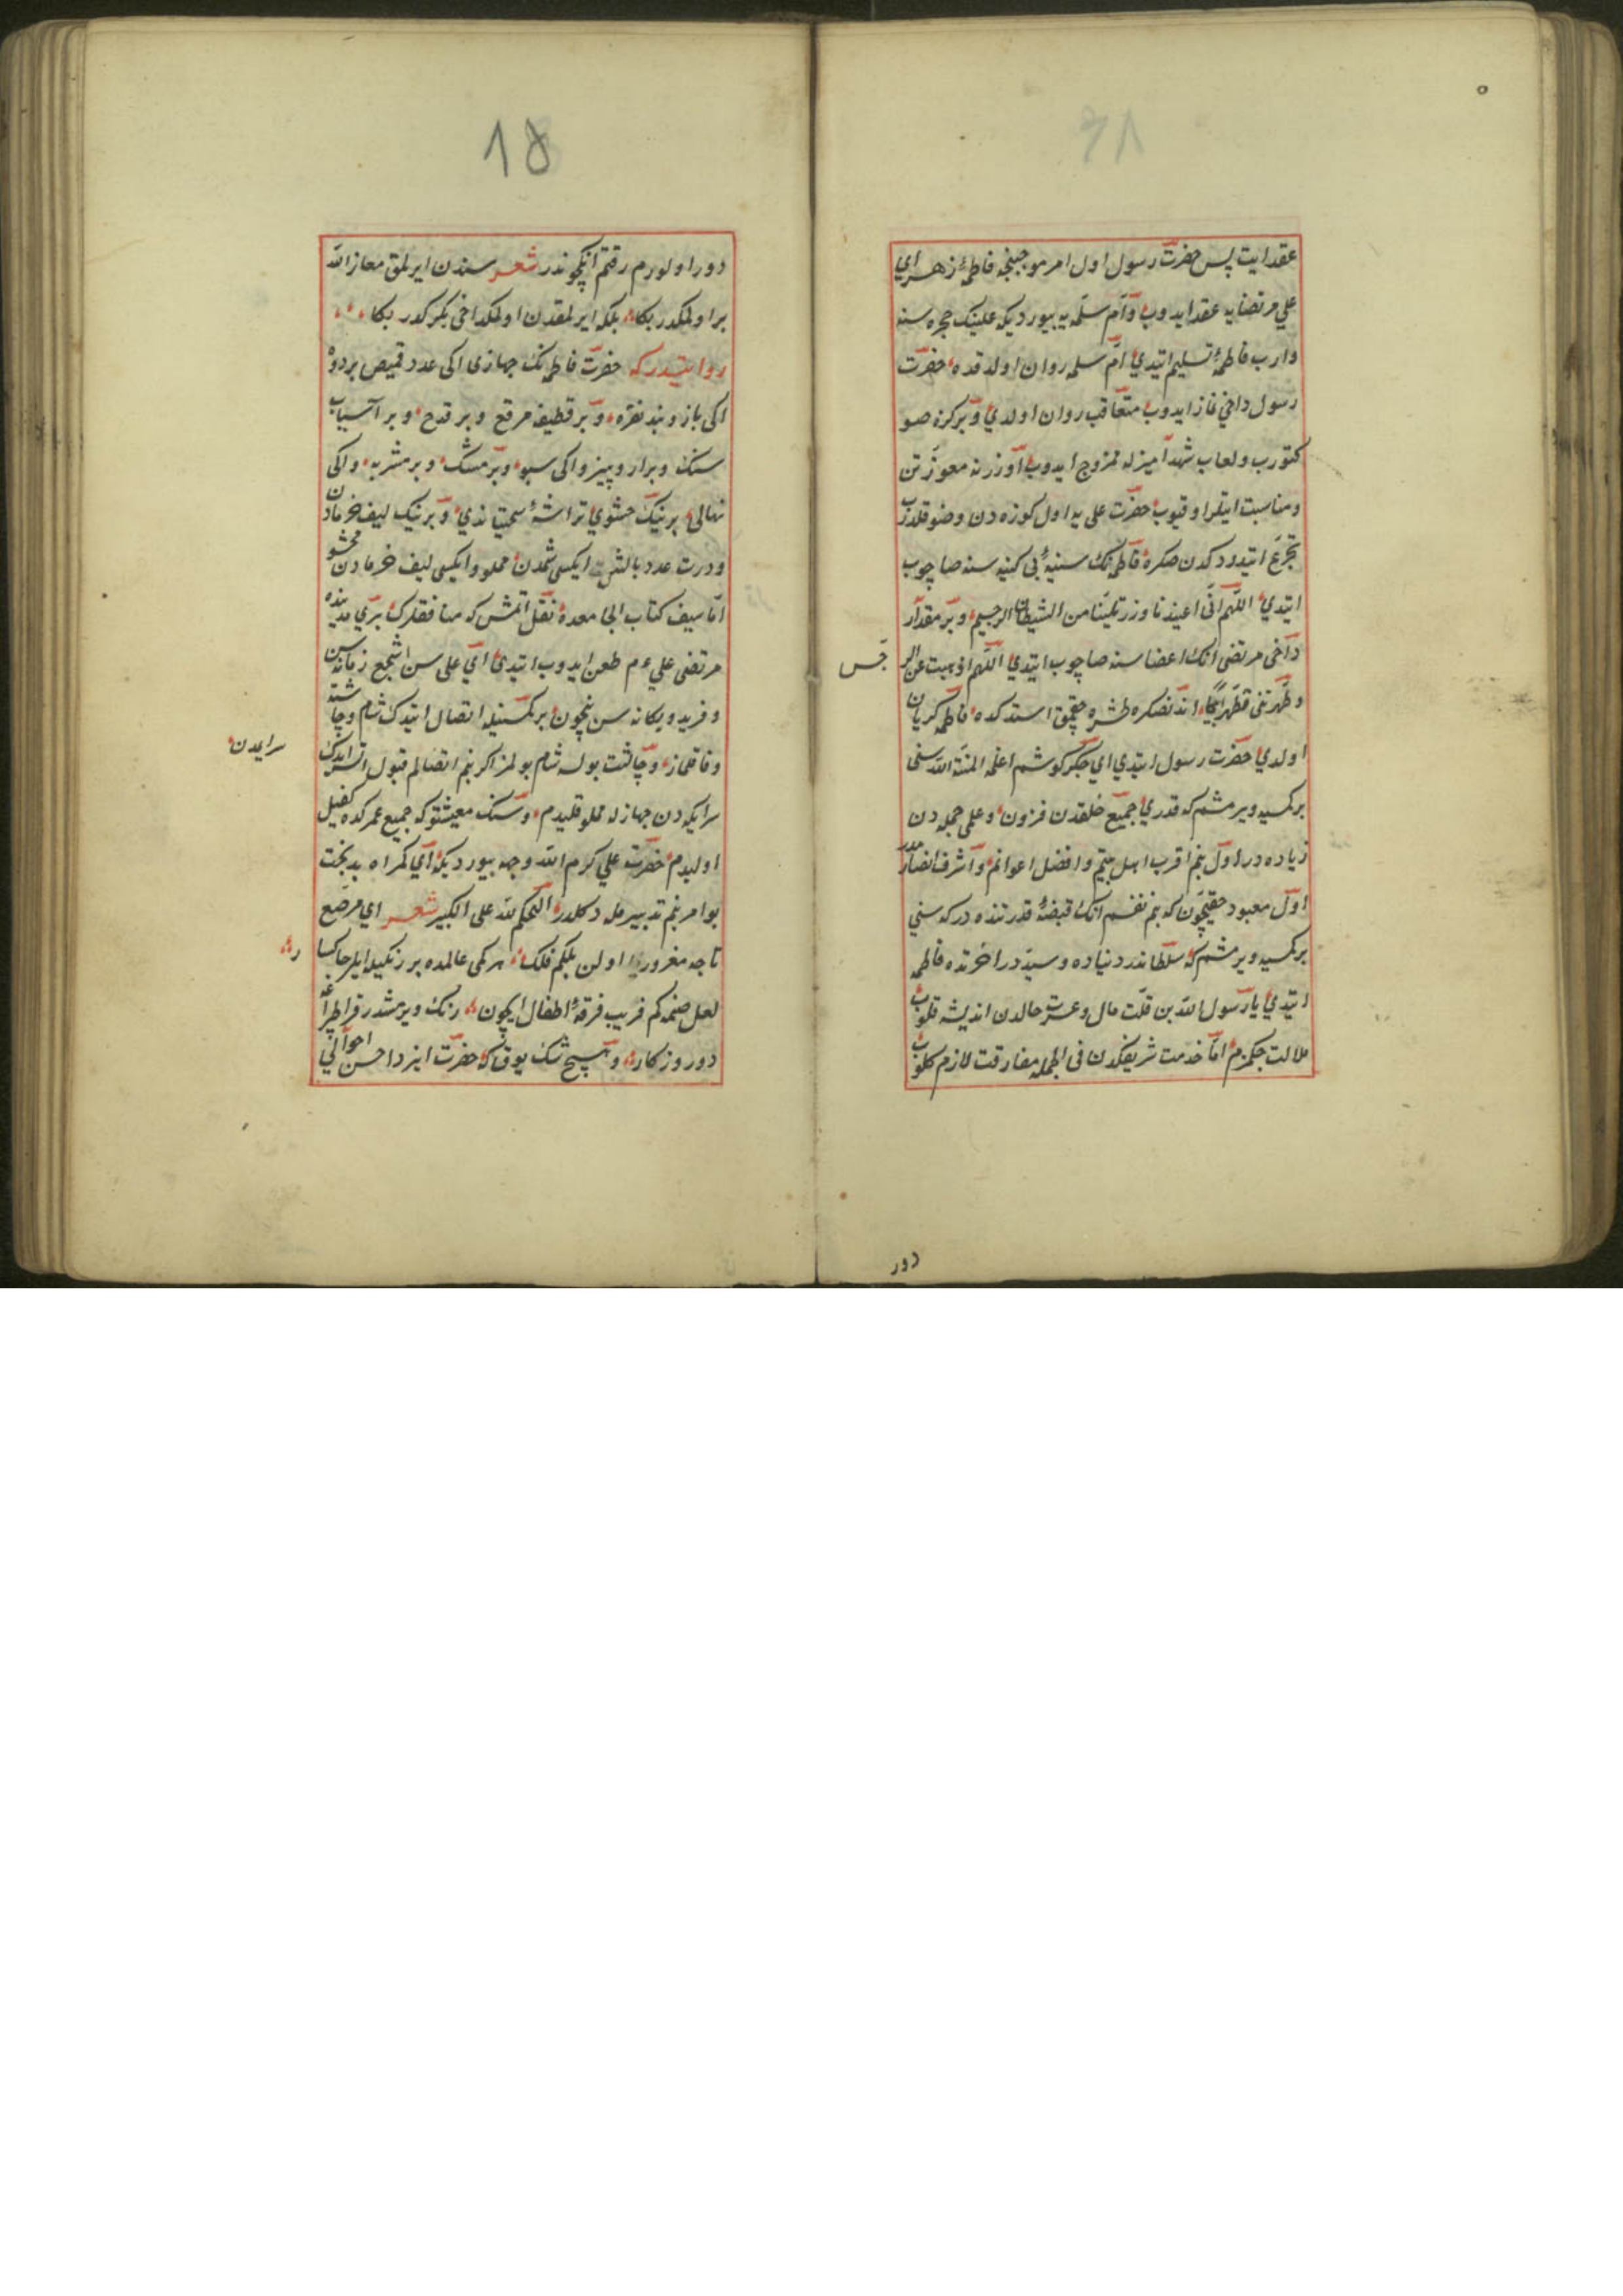 عقد ایت پس حضرت رسول اول امر موجبنجه فاطمهٔ زهرای
علی مرتضایه عقد ایدوب وام سلمه یه بیوردیکه علینک حجره سنه
وارب فاطمهٔ تسلیم ایتدی ام سلمه روان اولدقده حضرت
رسول داخی نماز ایدوب متعاقب روان اولدی وبر کوزه صو
کتورب ولعاب شهد آمیزله ممزوج ایدوب اوزرنه معوذتین
ومناسبت ایتلر اوقیوب حضرت علی یه اول کوزه دن وضو قلدرب
تجرع ایتدردکدن صکره فاطمه نک سینهٔ بی کینه سنه صاچوب
ایتدی اللهم انی اعیذها وذریتها من الشیطان الرجیم وبر مقدار
داخی مرتضی انک اعضا سنه صاچوب ایتدی اللهم اذهبت عن الر
جس
وطهرتنی تطهیرا اندنصکره طشره چقمق استدکده فاطمه کریان
اولدی حضرت رسول ایتدی ای جکر کوشم اغلمه المنة لله سنی
بر کمسیه ویرمشم که قدری جمیع خلقدن فزون وعلمی جمله دن
زیاده در اول بنم اقرب اهل بیتم وافضل اعوانم واشرف انصارمدر
اول معبود حقیچون که بنم نفسم انک قبضهٔ قدرتنده در که سنی
بر کمسیه ویرمشم که سلطاندر دنیاده وسیددر اخرتده فاطمه
ایتدی یا رسول الله بن قلت مال وعسرت حالدن اندیشه قلوب
ملالت چکمزم اما خدمت شریفکدن فی الجمله مفارقت لازم کلوب
دور
18
دور اولورم رقتم انکچوندر شعر سندن ایرلمق معاذ الله
بر اولمکدر بکا بلکه ایرلمقدن اولمک داخی یکرکدر بکا
روایتدر که حضرت فاطمه نک جهازی اکی عدد قمیص بردو
اکی بازوبند نقره وبر قطیفه مرقع وبر قدح وبر آسیاب
سنک وبر ارو پیز واکی سبو وبر مشک وبر مشربه واکی
نهالی برینک حشوی تراشهٔ سختیاندی وبرینک لیف خرمادن
ودرت عدد بالش ایکیسی شمدن مملو وایکیسی لیف خرمادن محشو
اما سیف کتاب ابی معمده نقل اتمش که منافقلرک بری مدینه ده
مرتضی علی ءم طعن ایدوب ایتدی ای علی سن اشجع زمانه سن
وفرید ویکانه سن نیچون بر کمسنیله اتصال ایتدک شام وچاشته
وفا قلماز وچاشت بولسه شام بولمز اکر بنم اتصالم قبول اتسیدک
سرایمدن
سرایکه دن جهازله مملو قلیدم وسنک معیشتوکه جمیع عمرکده کفیل
اولیدم حضرت علی کرم الله وجهه بیوردیکه ای کمراه بدبخت
بو امر بنم تدبیرمله دکلدر الحکم لله علی الکبیر شعر ای مرصع
تاجه مغرور اولن بلکم فلک هر کمی عالمده بر رنکیله ایلر جاکسار
لعل صنمه کم فریب فرقهٔ اطفال ایچون رنک ویرمشدر
دور روزکار وهیچ شک یوق که حضرت ایزد احسن احوالی